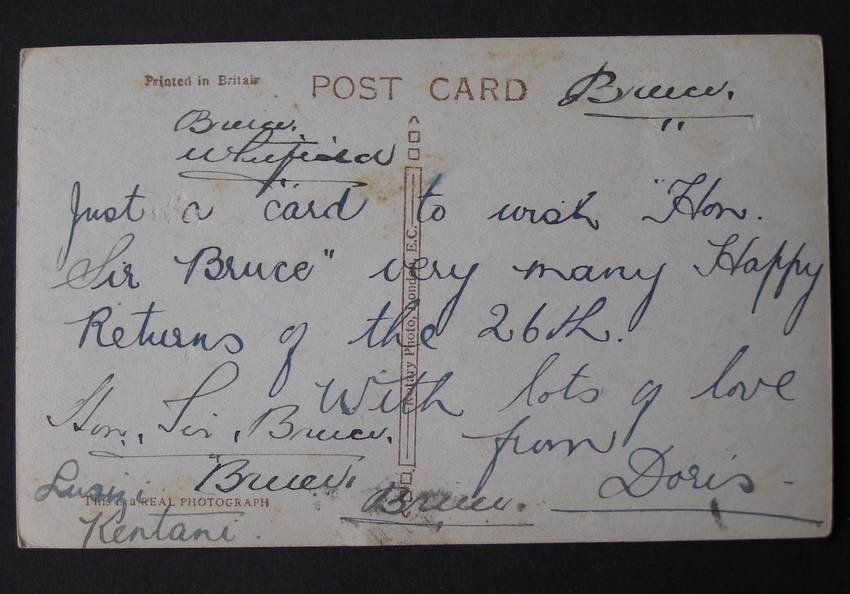 Printed in Britain
POST CARD
Bruce.
Bruce.
Whifield
Just a card to wish "Hon.
Sir Bruce" very many Happy
Returns of the 26th.
With lots of love
from
Doris
Hon. Sir. Bruce.
Bruce.
Bruce.
Kentani.
This is a REAL PHOTOGRAPH
Rotary Photo, London, E.C.